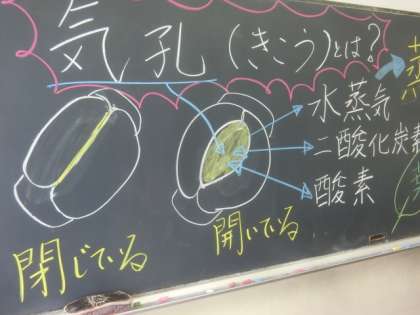 気孔(きこう)とは?
水蒸気
二酸化炭素
酸素
閉じている
開いている